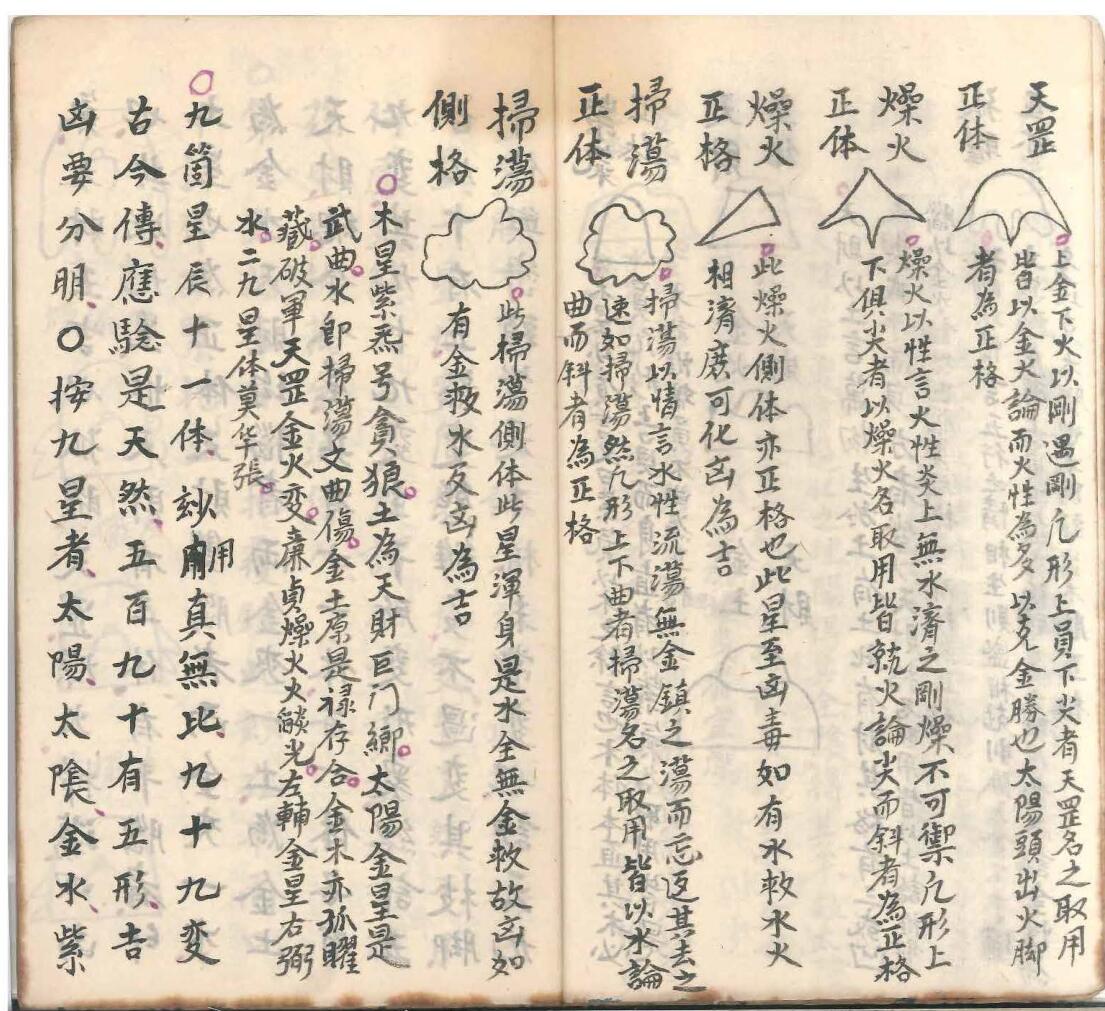 天罡
正体
上金下火以剛遇剛凢形上員下尖者天罡名之取用
皆以金火論而火性為多以克金勝也太陽頭出火脚
者為正格
燥火
正体
燥火以性言火性炎上無水濟之剛燥不可禦凢形上
下俱尖者以燥火名取用皆就火論尖而斜者為正格
燥火
正格
此燥火側体亦正格也此星至凶毒如有水救水火
相濟庶可化凶為吉
掃蕩
正体
掃蕩以情言水性流蕩無金鎮之蕩而忘返其去之
速如掃蕩然凢形上下曲者掃蕩名之取用皆以水論
曲而斜者為正格
掃蕩
側格
此掃蕩側体此星渾身是水全無金救故凶如
有金救水反凶為吉
木星紫炁号貪狼土為天財巨门鄉太陽金星是
武曲水卽掃蕩文曲傷金土原是禄存合金木亦孤曜
藏破軍天罡金火変廉貞燥火火燄光左輔金星右弼
水二九星体莫华張
九箇星辰十一体玅用真無比九十九変
古今傳應驗是天然五百九十有五形吉
凶要分明〇按九星者太陽太陰金水紫